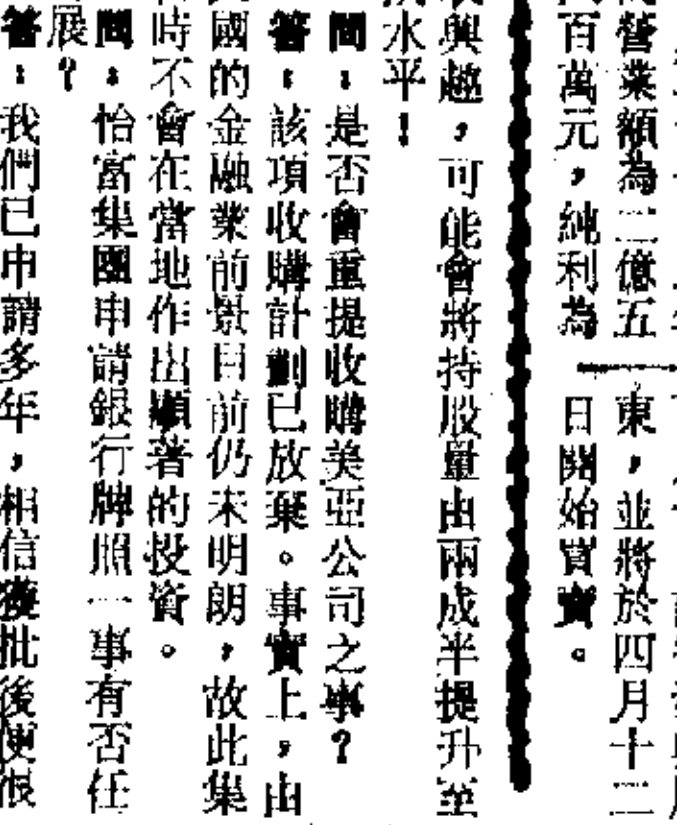 營業額為二億五
百萬元，純利為
東，並將於四月十二
日開始買賣。
興趣，可能會將持股量由兩成半提升至
水平！
問：是否會重提收購美亞公司之事？
答：該項收購計劃已放棄。事實上，由
國的金融業前景目前仍未明朗，故此集
時不會在當地作出顯著的投資。
問：怡富集團申請銀行牌照一事有否任
展？
答：我們已申請多年，相信獲批後便很